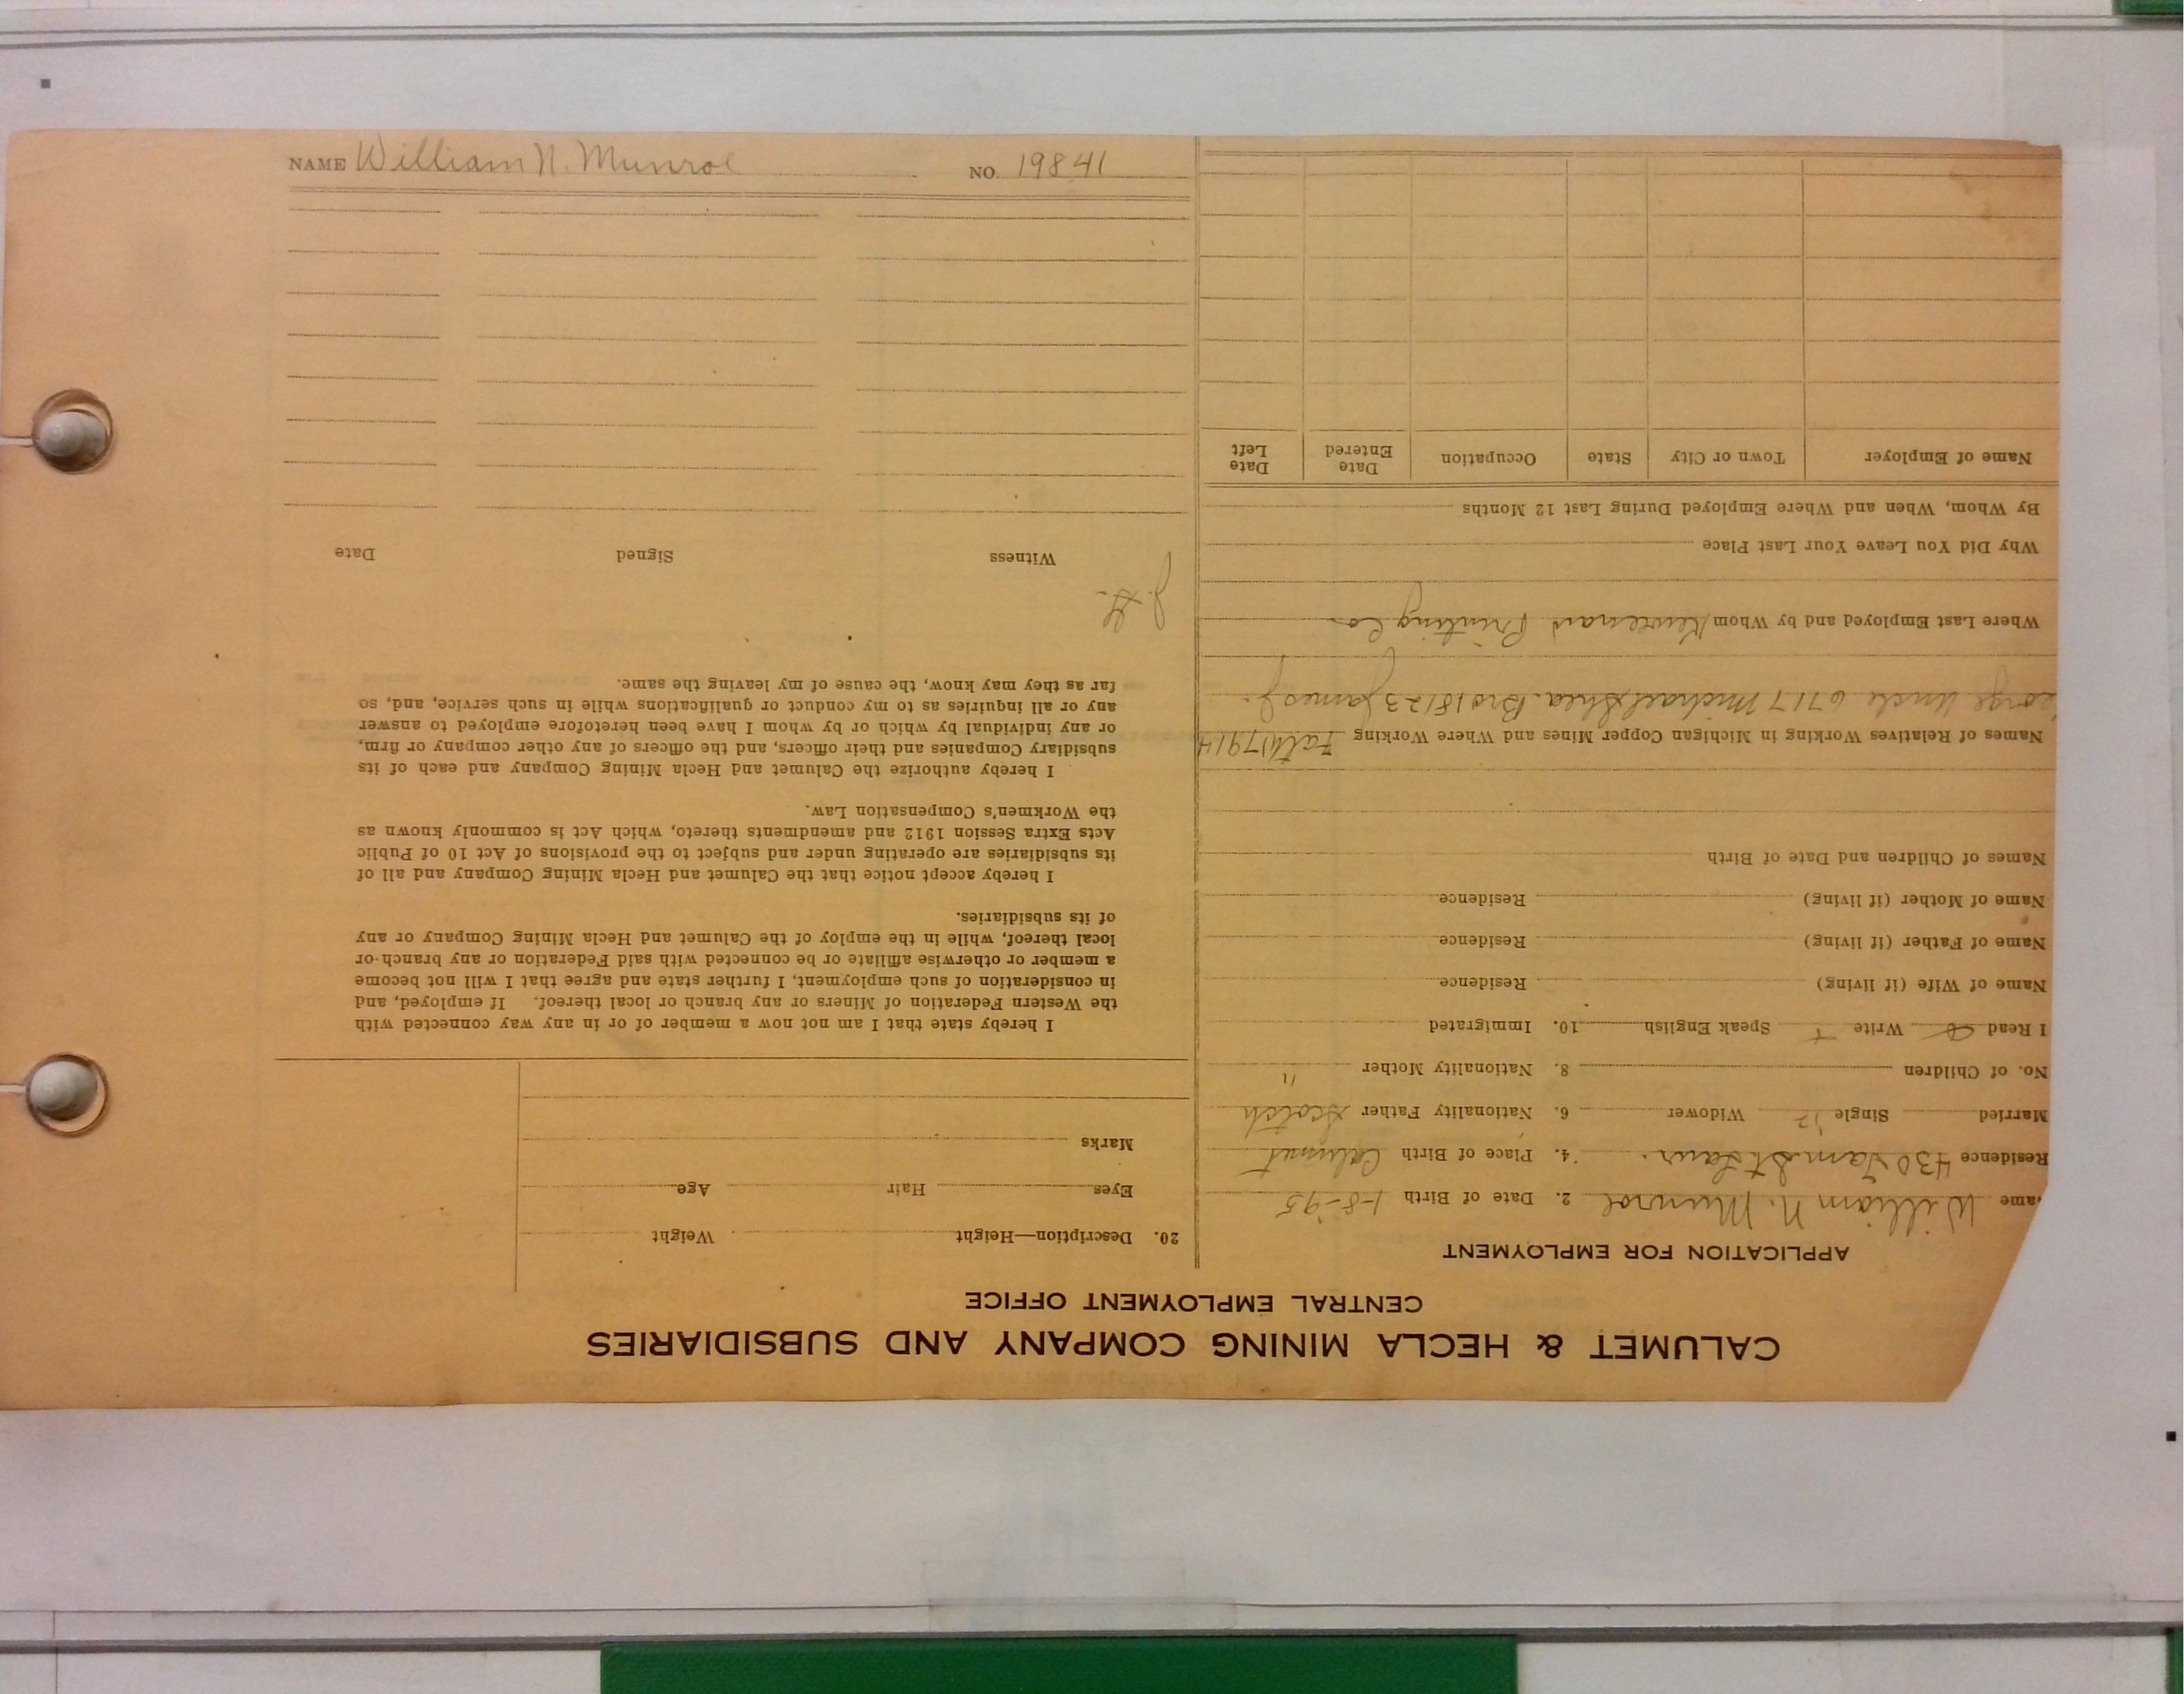 NAME William N. Munroe NO. 19841
CALUMET & HECLA MINING COMPANY AND SUBSIDIARIES
CENTRAL EMPLOYMENT OFFICE
APPLICATION FOR EMPLOYMENT
ame William N. Munroe 2. Date of Birth 1-8-95
Residence 430 Tam St Laur. 4. Place of Birth Calumet
Married Single Widower 6. Nationality Father Scotch
No. of Children 8. Nationality Mother "
I Read Write Speak English 10. Immigrated
Name of Wife (if living) Residence
Name of Father (if living) Residence
Name of Mother (if living) Residence
Names of Children and Date of Birth
Names of Relatives Working in Michigan Copper Mines and Where Working Fath 17914
eorge Uncle 6717 Michael Shea Bro 18123 James J.
Where Last Employed and by Whom Keweenaw Printing Co
Why Did You Leave Your Last Place
By Whom, When and Where Employed During Last 12 Months
Name of Employer Town or City State Occupation Date Entered Date Left
20. Description—Height Weight
Eyes Hair Age
Marks
I hereby state that I am not now a member of or in any way connected with
the Western Federation of Miners or any branch or local thereof. If employed, and
in consideration of such employment, I further state and agree that I will not become
a member or otherwise affiliate or be connected with said Federation or any branch or
local thereof, while in the employ of the Calumet and Hecla Mining Company or any
of its subsidiaries.
I hereby accept notice that the Calumet and Hecla Mining Company and all of
its subsidiaries are operating under and subject to the provisions of Act 10 of Public
Acts Extra Session 1912 and amendments thereto, which Act is commonly known as
the Workmen's Compensation Law.
I hereby authorize the Calumet and Hecla Mining Company and each of its
subsidiary Companies and their officers, and the officers of any other company or firm,
or any individual by which or by whom I have been heretofore employed to answer
any or all inquiries as to my conduct or qualifications while in such service, and, so
far as they may know, the cause of my leaving the same.
J. H.
Witness Signed Date